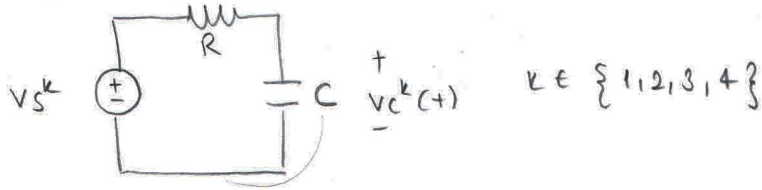 R
VS^k
+
-
C
+
VC^k(t)
-
k ∈ {1,2,3,4}